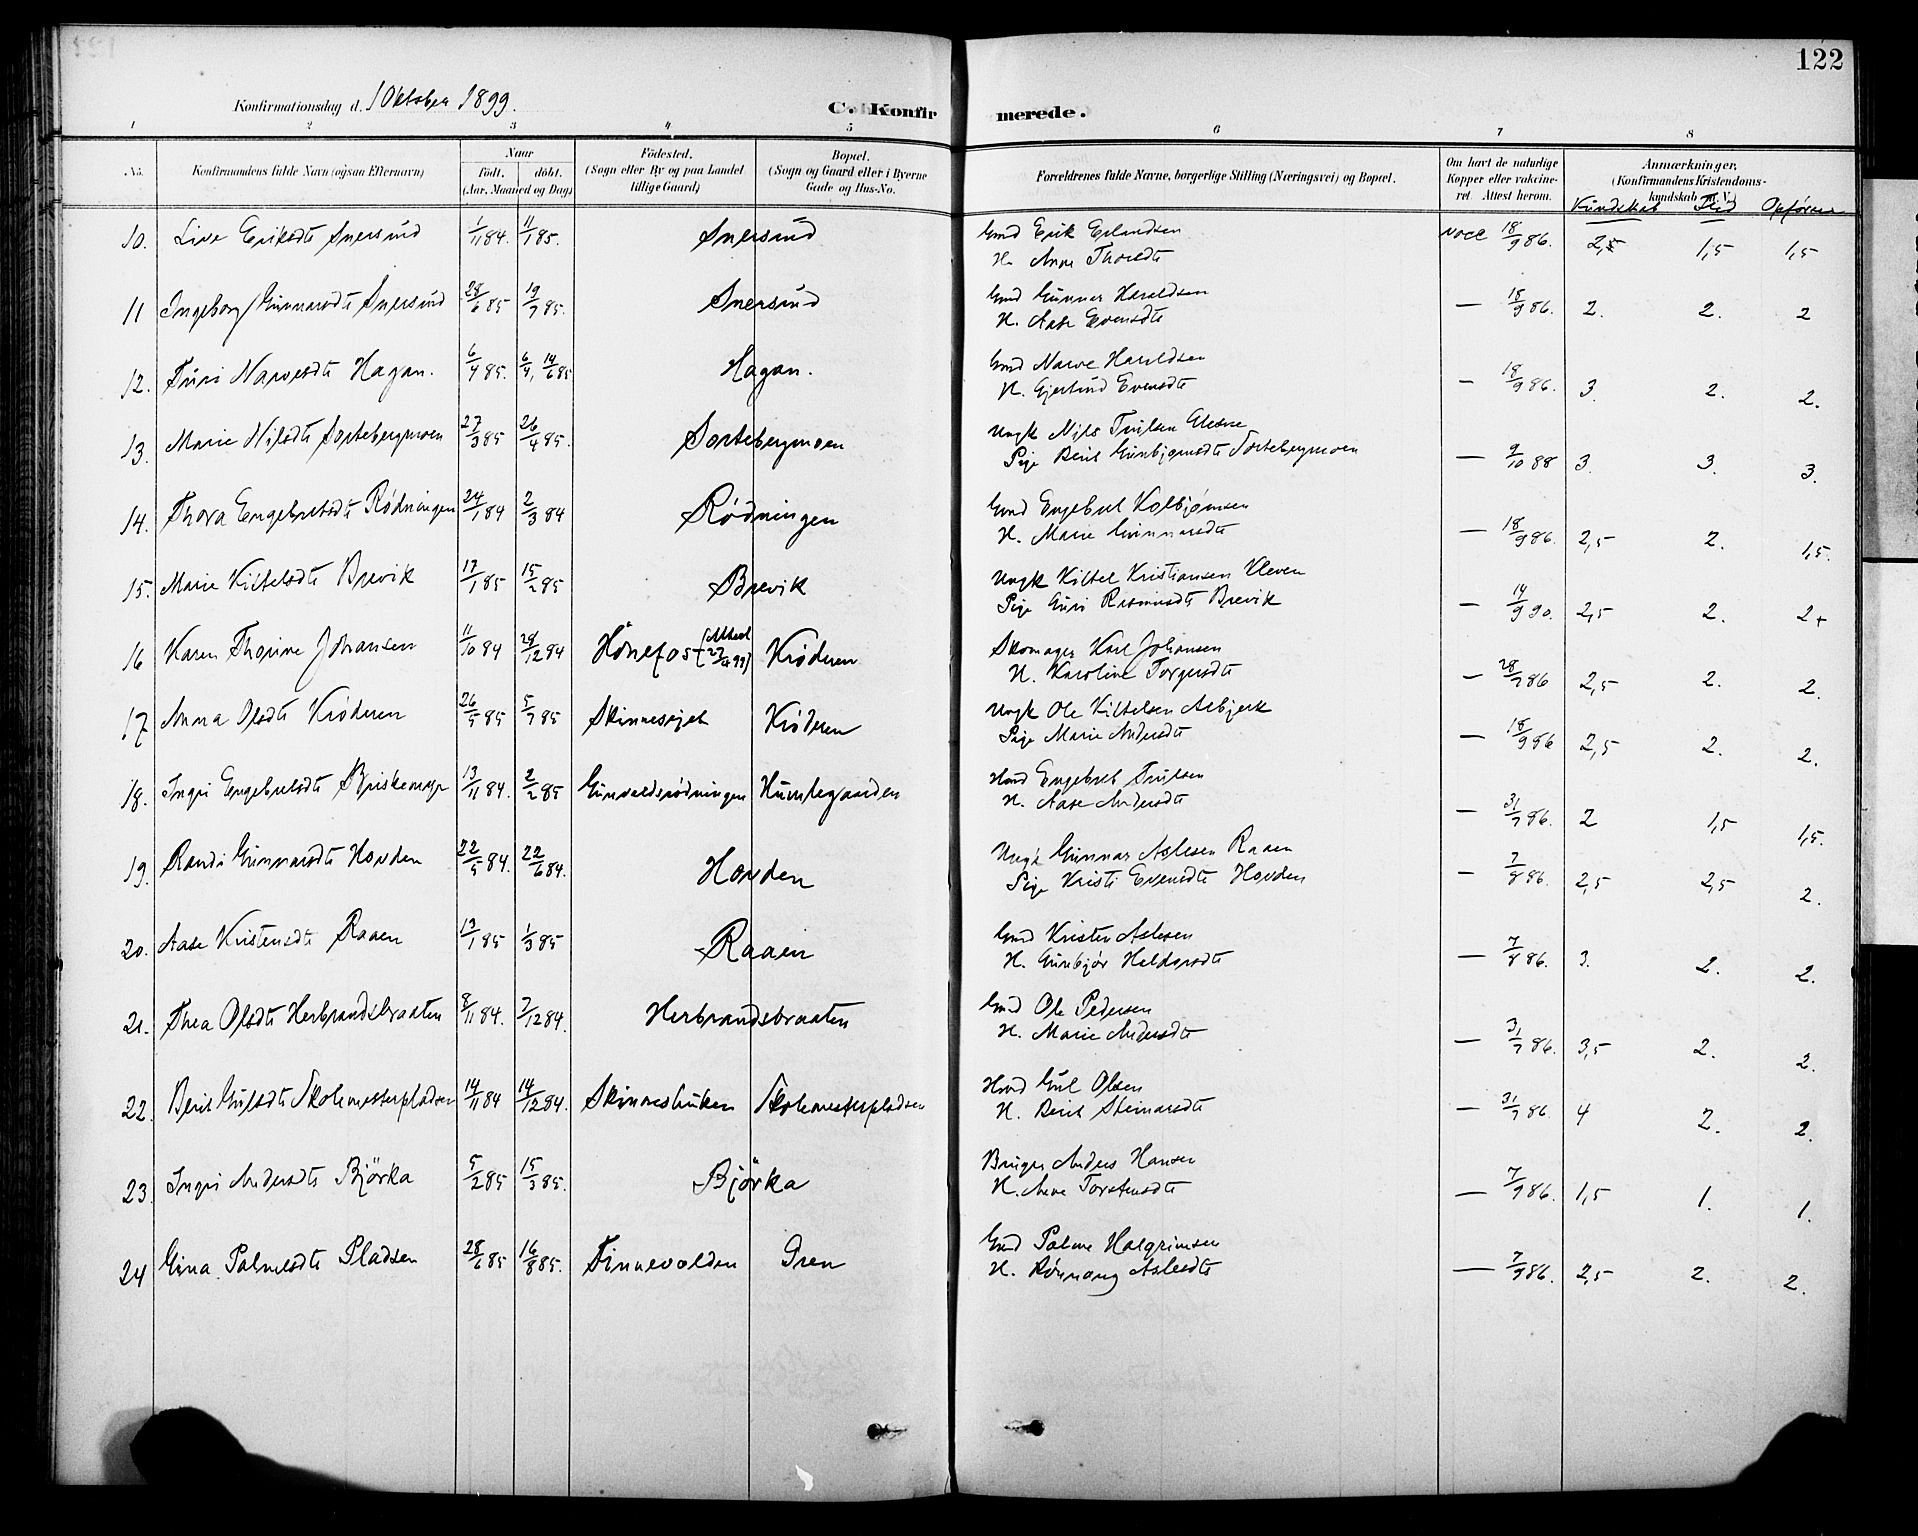 122
Konfirmationsdag d. 1 Oktober 1899.
C. Konfirmerede.
1 2 3 4 5 6 7 8
No. Konfirmandens fulde Navn (ogsaa Efternavn) Naar Født. døbt. (Aar, Maaned og Dag) Fødested. (Sogn eller By og paa Landet tillige Gaard) Bopæl. (Sogn og Gaard eller i Byerne Gade og Hus-No. Forældrenes fulde Navne, borgerlige Stilling (Næringsvei) og Bopæl. Om havt de naturlige Kopper eller vaccineret. Attest herom. Anmærkninger. (Konfirmandens Kristendomskundskab m. V.)
Kundskab Flid Opførsel
10. Live Eriksdt Snersrud 1/11 84. 11/1 85. Snersrud Gmd Erik Erlandsen vacc 18/9 86. 2,5 1,5 1,5
H. Anne Thorsdt
11 Ingeborg Gunnarsdt Snersrud 28/6 85 19/7 85. Snersrud Gmd Gunnar Haraldsen — 18/9 86. 2. 2. 2
H. Aase Evensdt
12. Turi Narvesdt Hagan. 6/4 85. 6/4, 14/6 85 Hagan. Gmd Narve Haraldsen — 18/9 86. 3. 2. 2.
H. Gjertrud Evensdt
13. Marie Nilsdt Sortebergmoen 27/3 85 26/4 85. Sortebergmoen Ungk Nils Trulsen — 9/10 88 3. 3. 3.
Pige Berit Gunbjørnsdt Sortebergmoen
14. Thora Engebretsdt Rødningen 24/1 84 2/3 84 Rødningen Gmd Engebret Kolbjørnsen — 18/9 86. 2,5 2. 1,5.
H. Marie Gunnarsdt
15. Marie Kittelsdt Brevik 17/1 85 15/2 85 Brevik Ungk Kittel Kristiansen Kleven — 14/9 90. 2,5 2. 2+
Pige Guri Rasmusdt Brevik
16 Karen Thorine Johansen 11/10 84 28/12 84 Hönefos (Attest 27/9 99) Krøderen Skomager Karl Johansen — 28/7 86 2,5 2. 2.
H. Karoline Torgersdt
17 Anna Olsdt Krøderen 26/5 85 5/7 85 Skinnesejet Krøderen Ungk Ole Kittelsen Asbjerk — 18/9 86 2,5 2. 2.
Pige Marie Andersdt
18. Ingri Engebretsdt 13/11 84. 2/2 85 Gunvaldsrødningen Humlegaarden Hmd Engebret Trulsen — 31/7 86. 2 1,5 1,5.
H. Aase Andersdt
19. Randi Gunnarsdt Hovden 22/5 84. 22/6 84. Hovden Ungk Gunnar Aslesen Raaen — 7/8 86. 2,5 2,5 2.
Pige Kristi Evensdt Hovden
20. Aase Kristensdt Raaen 13/1 85 1/3 85 Raaen Gmd Kristen Aslesen — 7/8 86. 3. 2. 2.
H. Gunbjør Haldorsdt
21. Thea Olsdt Herbrandsbraaten 8/11 84. 7/12 84. Herbrandsbraaten Gmd Ole Pedersen — 31/7 86. 3,5 2. 2.
H. Marie Andersdt
22. Berit Gulsdt Skolemesterpladsen 14/11 84 14/12 84. Skinneshuken Skolemesterpladsen Hmd Gul Olsen — 31/7 86. 4 2. 2.
H. Berit Steinarsdt
23. Ingri Andersdt Björka 5/2 85 15/3 85. Björka Bruger Anders Hansen — 7/9 86. 1,5 1. 1.
H. Anne Torstensdt
24 Gina Palmesdt Pladsen 28/6 85 16/8 85. Finnevolden Gren Gmd Palme Halgrimsen — 7/9 86. 2,5 2. 2.
H. Rønnaug Aslesdt